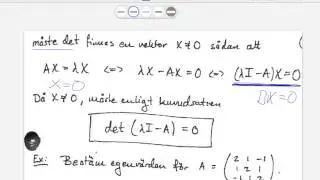 måste det finnas en vektor X≠0 sådan att
AX = λX <=> λX - AX = 0 <=> (λI-A)X = 0
X=0
BX=0
Då X≠0, måste enligt huvudsatsen
det (λI-A) = 0
Ex: Bestäm egenvärden för A = ( 2 1 -1
1 2 1
-1 1 2